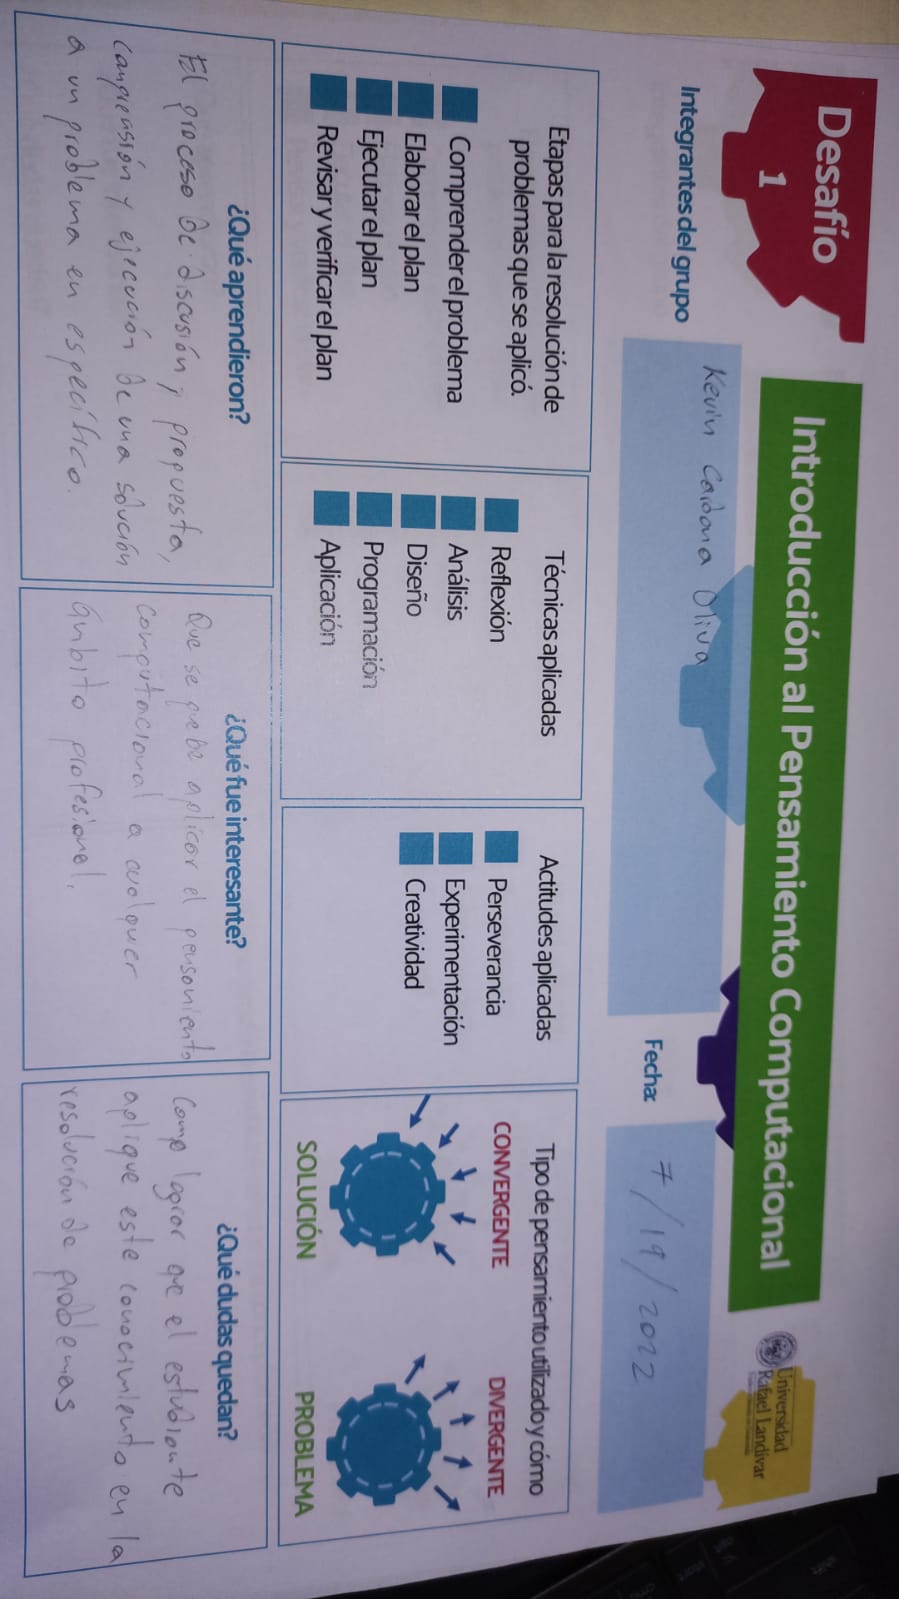 Desafío
1
Introducción al Pensamiento Computacional
Universidad
Rafael Landívar
Integrantes del grupo
Kevin Cardona Oliva
Fecha:
7/19/2022
Etapas para la resolución de
problemas que se aplicó.
Comprender el problema
Elaborar el plan
Ejecutar el plan
Revisar y verificar el plan
Técnicas aplicadas
Reflexión
Análisis
Diseño
Programación
Aplicación
Actitudes aplicadas
Perseverancia
Experimentación
Creatividad
Tipo de pensamiento utilizado y cómo
CONVERGENTE
DIVERGENTE
SOLUCIÓN
PROBLEMA
¿Qué aprendieron?
El proceso de discusión, propuesta,
comprensión y ejecución de una solución
a un problema en específico.
¿Qué fue interesante?
Que se puede aplicar el pensamiento
computacional a cualquier
ámbito profesional.
¿Qué dudas quedan?
Como lograr que el estudiante
aplique este conocimiento en la
resolución de problemas